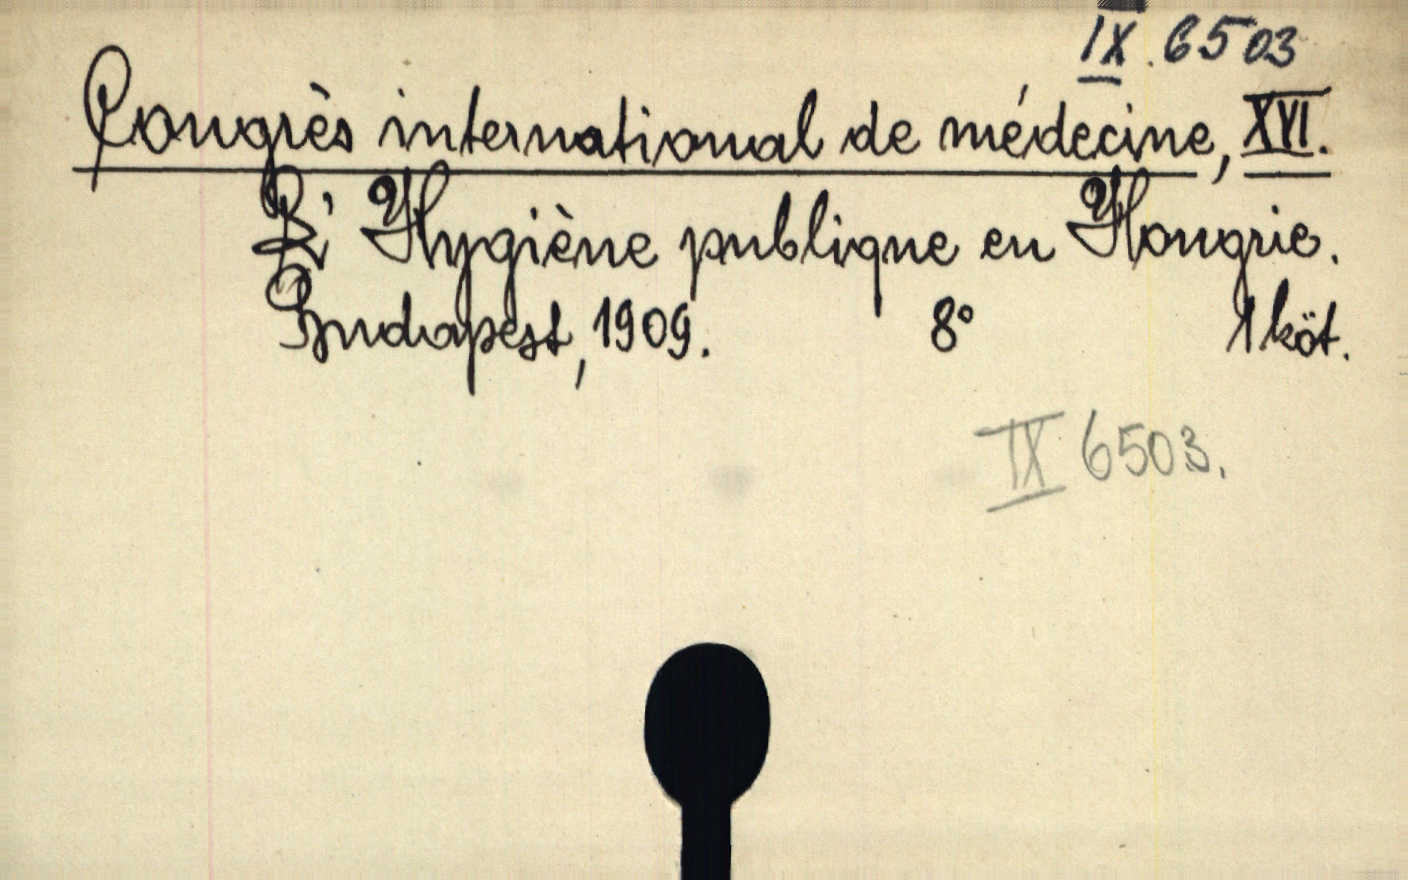 IX. 6503
Congrès international de médecine, XVI.
L'Hygiène publique en Hongrie.
Budapest, 1909. 8° 1 köt.
IX 6503.